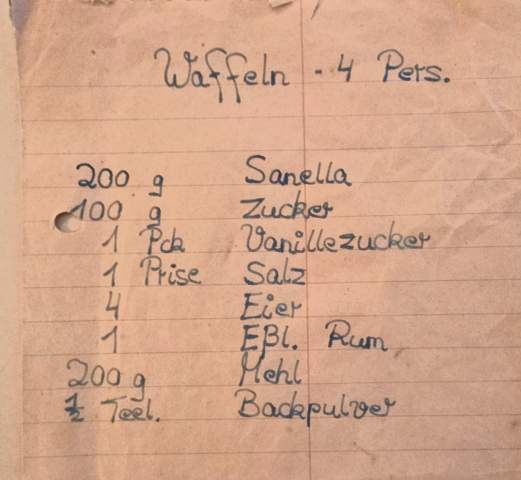 Waffeln - 4 Pers.
200 g Sanella
100 g Zucker
1 Pck Vanillezucker
1 Prise Salz
4 Eier
1 Eßl. Rum
200 g Mehl
½ Teel. Backpulver